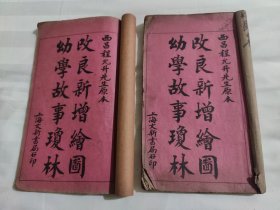 西昌程允升先生原本
改良新增繪圖
幼學故事瓊林
上海文新書局石印
西昌程允升先生原本
改良新增繪圖
幼學故事瓊林
上海文新書局石印